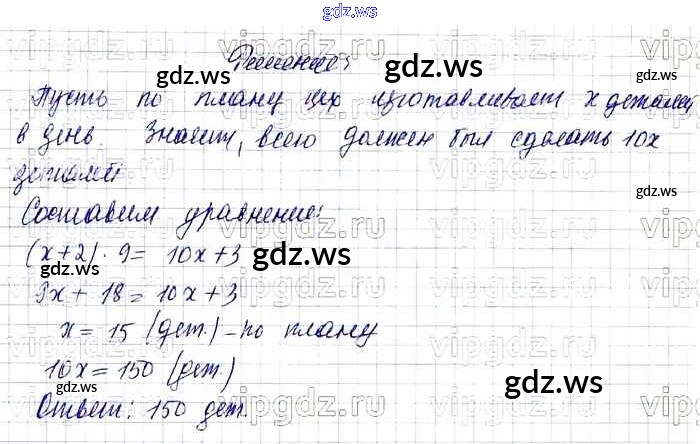 gdz.ws
Решение:
gdz.ws
Пусть по плану цех изготавливает x деталей
в день. Значит, всего должен был сделать 10x
gdz.ws
деталей
gdz.ws
Составим уравнение:
(x+2)·9= 10x+3 gdz.ws
9x+18=10x+3
x=15 (дет.) - по плану
10x=150 (дет.)
gdz.ws gdz.ws
Ответ: 150 дет.
gdz.ws
vipgdz.ru